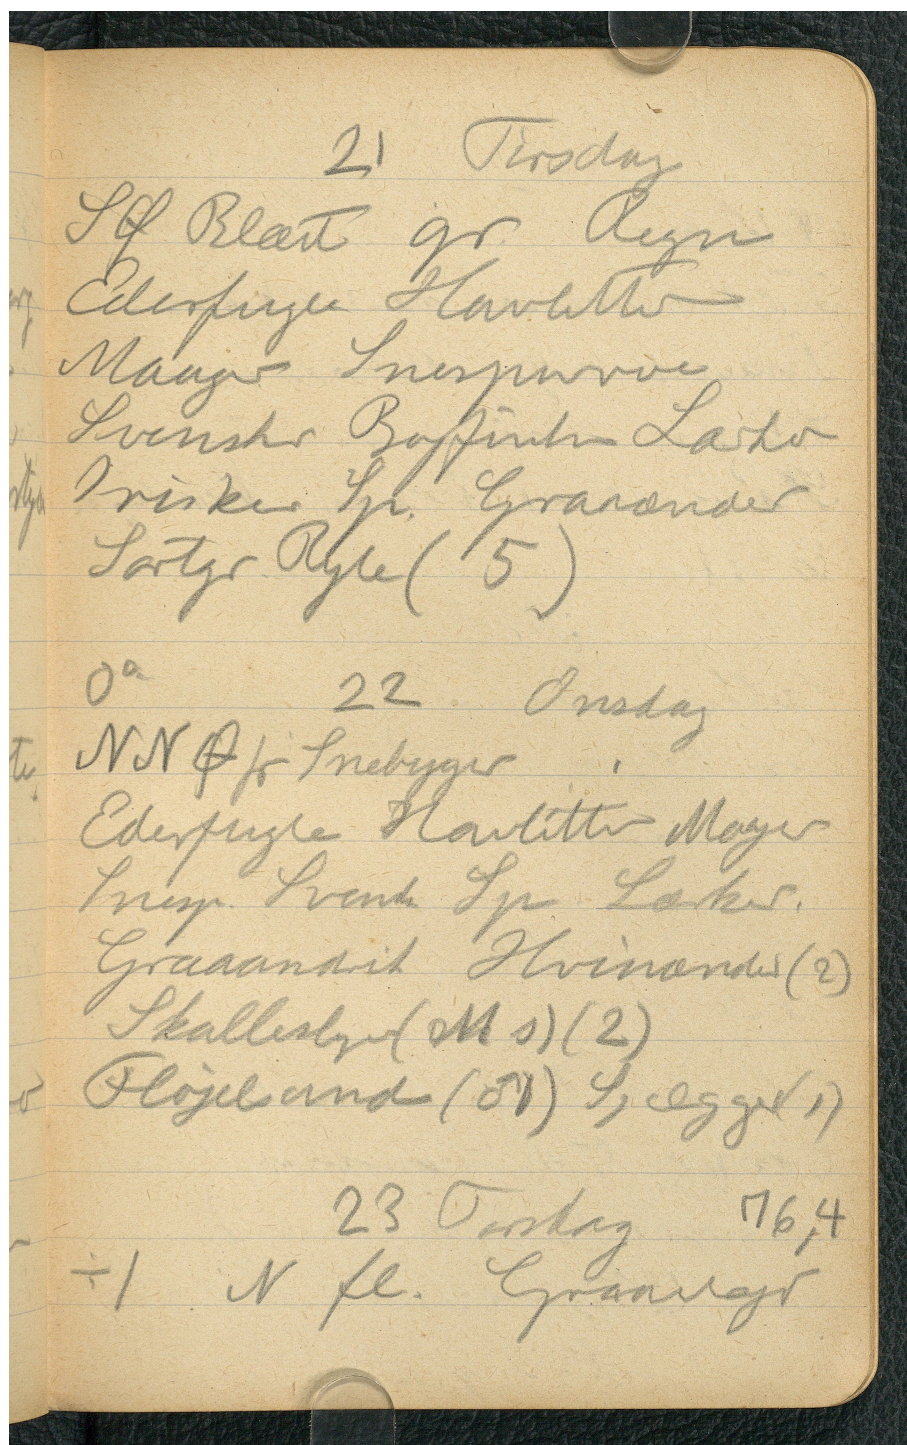 21 Tirsdag
SØ Blæst gr. Regn
Ederfugle Havlitter
Maager Snespurve
Svenskr Bogfinker Lærker
Irisker Sp. Graaænder
Sortgr. Ryle (5)
0° 22. Onsdag
NNØ fr Snebyger
Ederfugle Havlitter Mager
Snesp. Svensk Sp Lærker.
Graaandrik Hvinænder (2)
Skallesluger (M s) (2)
Fløjelsand (♂1)
23 Torsdag 76,4
÷1 N fl. Graavejr